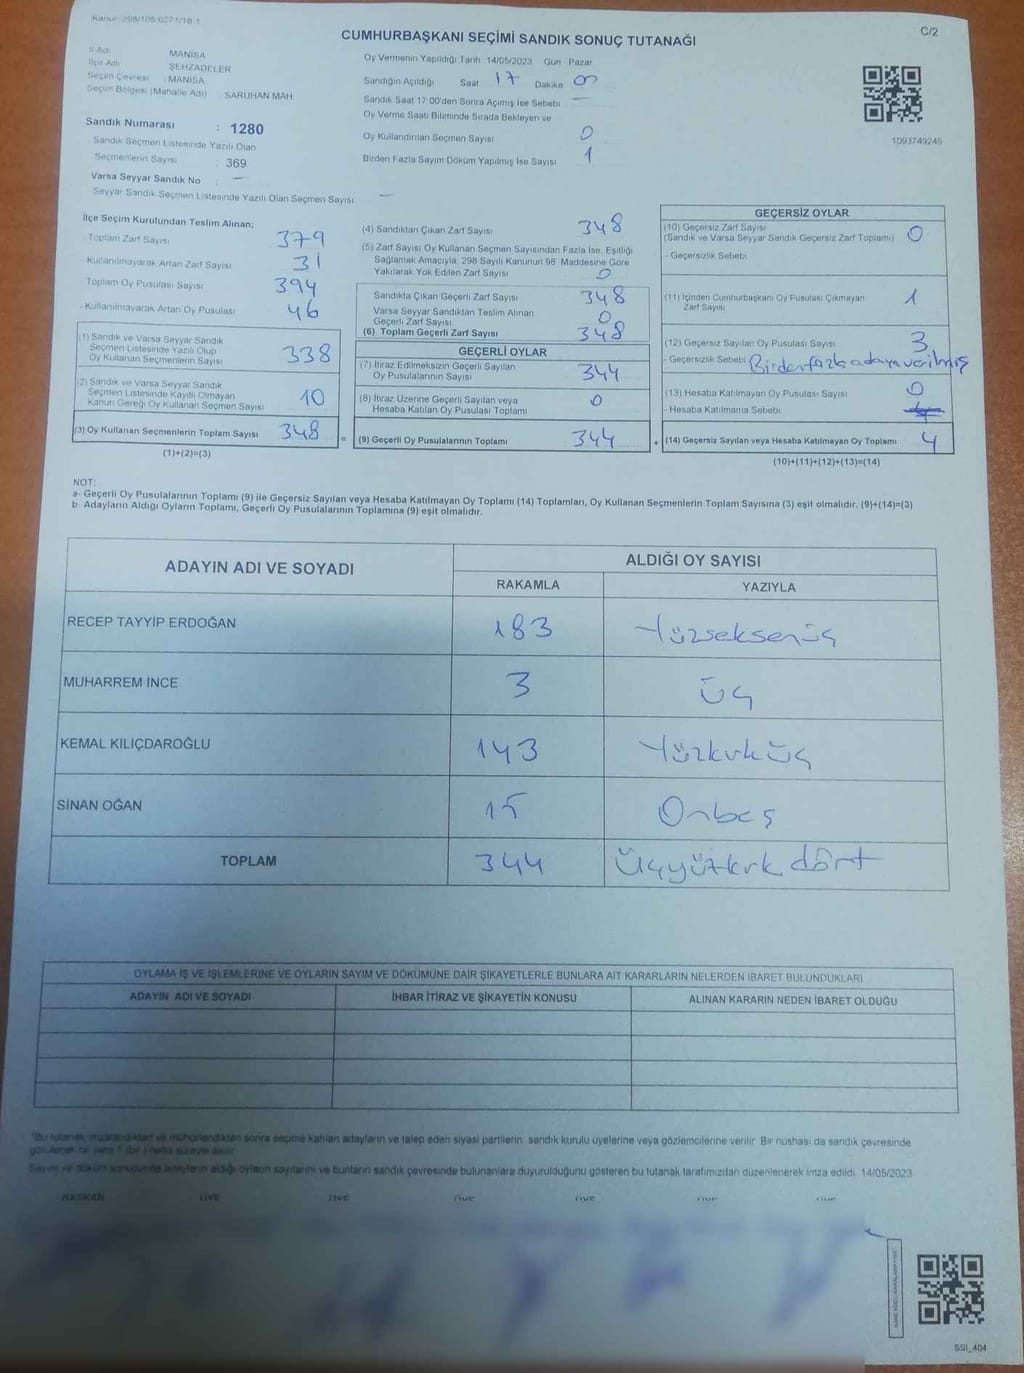 Kanun 298/105 6271/18 1
C/2
CUMHURBAŞKANI SEÇİMİ SANDIK SONUÇ TUTANAĞI
İl Adı MANİSA
İlçe Adı ŞEHZADELER
Seçim Çevresi : MANİSA
Seçim Bölgesi (Mahalle Adı) SARUHAN MAH
Sandık Numarası : 1280
Sandık Seçmen Listesinde Yazılı Olan
Seçmenlerin Sayısı : 369
Varsa Seyyar Sandık No : —
Seyyar Sandık Seçmen Listesinde Yazılı Olan Seçmen Sayısı —
Oy Vermenin Yapıldığı Tarih 14/05/2023 Gün Pazar
Sandığın Açıldığı Saat 17 Dakika 00
Sandık Saat 17 00'den Sonra Açılmış İse Sebebi —
Oy Verme Saati Bitiminde Sırada Bekleyen ve
Oy Kullandırılan Seçmen Sayısı 0
Birden Fazla Sayım Döküm Yapılmış İse Sayısı 1
1093749245
İlçe Seçim Kurulundan Teslim Alınan;
Toplam Zarf Sayısı 379
- Kullanılmayarak Artan Zarf Sayısı 31
Toplam Oy Pusulası Sayısı 394
- Kullanılmayarak Artan Oy Pusulası 46
(1) Sandık ve Varsa Seyyar Sandık
Seçmen Listesinde Yazılı Olup
Oy Kullanan Seçmenlerin Sayısı 338
(2) Sandık ve Varsa Seyyar Sandık
Seçmen Listesinde Kayıtlı Olmayan
Kanun Gereği Oy Kullanan Seçmen Sayısı 10
(3) Oy Kullanan Seçmenlerin Toplam Sayısı 348 =
(1)+(2)=(3)
(4) Sandıktan Çıkan Zarf Sayısı 348
(5) Zarf Sayısı Oy Kullanan Seçmen Sayısından Fazla İse, Eşitliği
Sağlamak Amacıyla, 298 Sayılı Kanunun 98 Maddesine Göre
Yakılarak Yok Edilen Zarf Sayısı 0
Sandıkta Çıkan Geçerli Zarf Sayısı 348
Varsa Seyyar Sandıktan Teslim Alınan
Geçerli Zarf Sayısı 0
(6) Toplam Geçerli Zarf Sayısı 348
GEÇERLİ OYLAR
(7) İtiraz Edilmeksizin Geçerli Sayılan
Oy Pusulalarının Sayısı 344
(8) İtiraz Üzerine Geçerli Sayılan veya
Hesaba Katılan Oy Pusulası Toplamı 0
(9) Geçerli Oy Pusulalarının Toplamı 344 +
GEÇERSİZ OYLAR
(10) Geçersiz Zarf Sayısı
(Sandık ve Varsa Seyyar Sandık Geçersiz Zarf Toplamı) 0
- Geçersizlik Sebebi
(11) İçinden Cumhurbaşkanı Oy Pusulası Çıkmayan
Zarf Sayısı 1
(12) Geçersiz Sayılan Oy Pusulası Sayısı 3
- Geçersizlik Sebebi Birden fazla adaya verilmiş
(13) Hesaba Katılmayan Oy Pusulası Sayısı 0
- Hesaba Katılmama Sebebi
(14) Geçersiz Sayılan veya Hesaba Katılmayan Oy Toplamı 4
(10)+(11)+(12)+(13)=(14)
NOT:
a- Geçerli Oy Pusulalarının Toplamı (9) ile Geçersiz Sayılan veya Hesaba Katılmayan Oy Toplamı (14) Toplamları, Oy Kullanan Seçmenlerin Toplam Sayısına (3) eşit olmalıdır. (9)+(14)=(3)
b- Adayların Aldığı Oyların Toplamı, Geçerli Oy Pusulalarının Toplamına (9) eşit olmalıdır.
ADAYIN ADI VE SOYADI
ALDIĞI OY SAYISI
RAKAMLA YAZIYLA
RECEP TAYYİP ERDOĞAN 183 Yüzseksenüç
MUHARREM İNCE 3 üç
KEMAL KILIÇDAROĞLU 143 Yüzkırküç
SİNAN OĞAN 15 Onbeş
TOPLAM 344 Üçyüzkırk dört
OYLAMA İŞ VE İŞLEMLERİNE VE OYLARIN SAYIM VE DÖKÜMÜNE DAİR ŞİKAYETLERLE BUNLARA AİT KARARLARIN NELERDEN İBARET BULUNDUKLARI
ADAYIN ADI VE SOYADI İHBAR İTİRAZ VE ŞİKAYETİN KONUSU ALINAN KARARIN NEDEN İBARET OLDUĞU
"Bu tutanak imzalandıktan ve mühürlendikten sonra seçime katılan adayların ve talep eden siyasi partilerin sandık kurulu üyelerine veya gözlemcilerine verilir. Bir nüshası da sandık çevresinde
Sayım ve döküm sonucunda adayların aldığı oyların sayılarını ve bunların sandık çevresinde bulunanlara duyurulduğunu gösteren bu tutanak tarafımızdan düzenlenerek imza edildi. 14/05/2023
BAŞKAN ÜYE ÜYE ÜYE ÜYE ÜYE ÜYE
SSI_404